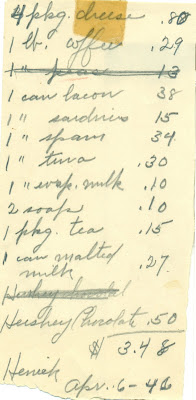 4 pkg. cheese .80
1 lb. coffee .29
1 " peas 13
1 can bacon 38
1 " sardines 15
1 " spam 34
1 " tuna .30
1 " evap. milk .10
2 soaps .10
1 pkg. tea .15
1 can malted
milk .27
Hershey
Hershey Chocolate .50
$ 3.48
Heniek
Apr. 6-46